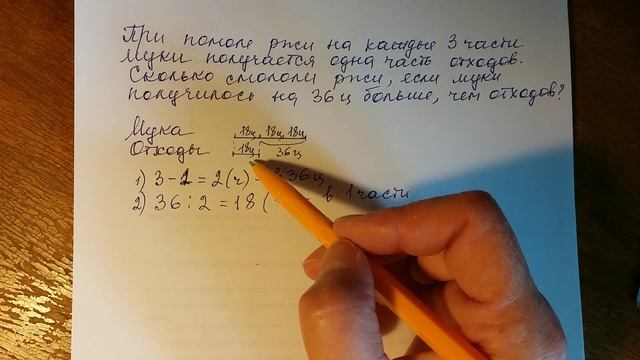 При помоле ржи на каждые 3 части
муки получается одна часть отходов.
Сколько смололи ржи, если муки
получилось на 36 ц больше, чем отходов?
Мука 18ц 18ц 18ц
Отходы 18ц 36ц
1) 3-1=2(ч) 36ц
2) 36:2=18( в 1 части